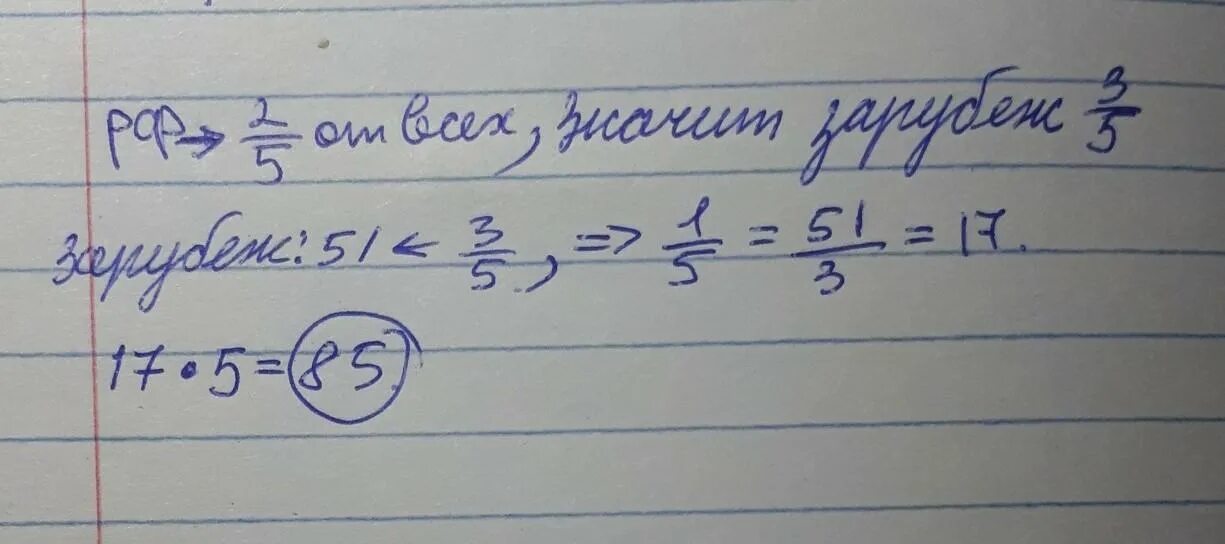 рфр → 2/5 от всех, значит зарубеж 3/5
зарубеж: 51 ← 3/5, => 1/5 = 51/3 = 17.
17 • 5 = 85